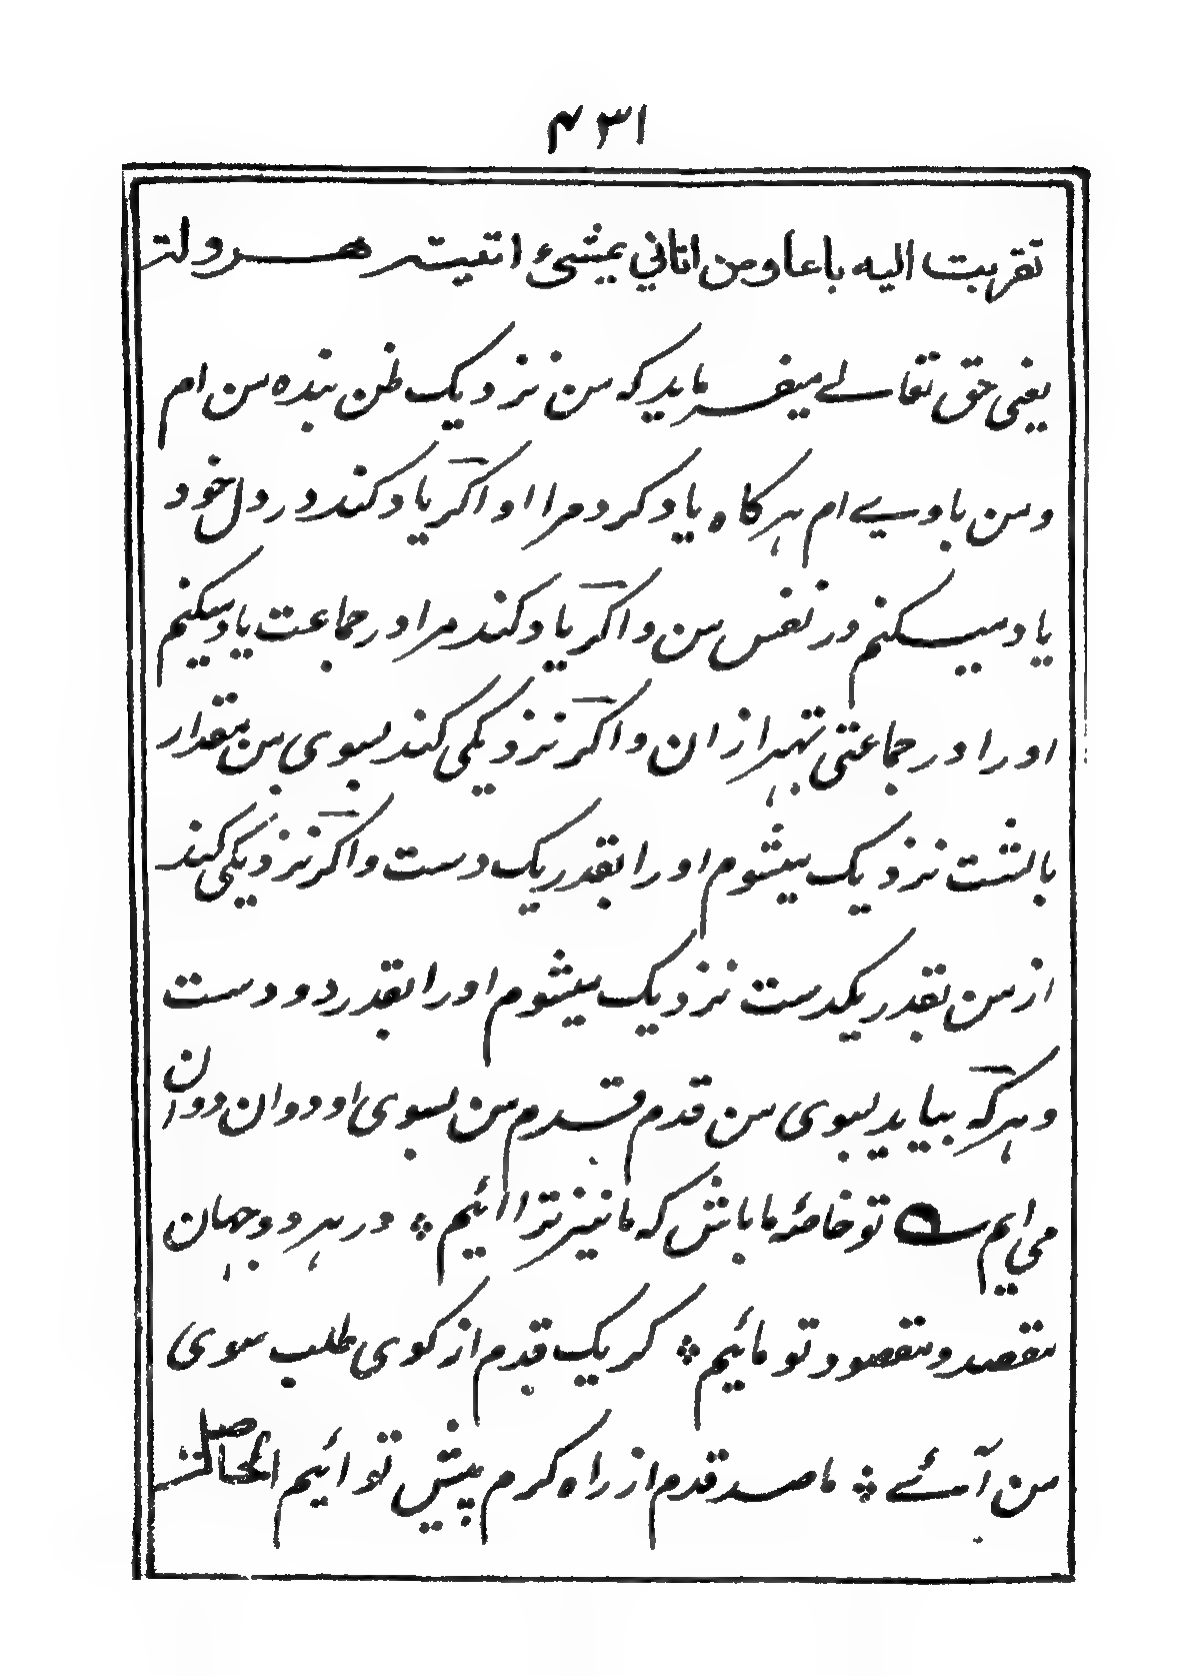 ۴۳۱
تقربت الیه باعا ومن اتاني بمشیٔ اتیته هرولة
یعنی حق تعالے میفرماید که من نزدیک ظن بنده من ام
ومن باویے ام هرگاه یاد کرد مرا او اگر یاد کند در دل خود
یاد میکنم در نفس من و اگر یاد کند مرا در جماعت یاد میکنم
او را در جماعتی بهتر از ان و اگر نزدیکی کند بسوی من بمقدار
بالشت نزدیک میشوم او را بقدر یک دست و اگر نزدیکی کند
از من بقدر یکدست نزدیک میشوم او را بقدر دو دست
و هر که بیاید بسوی من قدم قدم من بسوی او دوان دوان
می ایم ـه تو خاصۀ ما باش که ما نیز ترا ائیم ؞ در هر دو جهان
مقصد و مقصود تو مائیم ؞ گر یک قدم از کوی طلب سوی
من آئے ؞ ما صد قدم از راه کرم پیش تو ائیم الحاصل